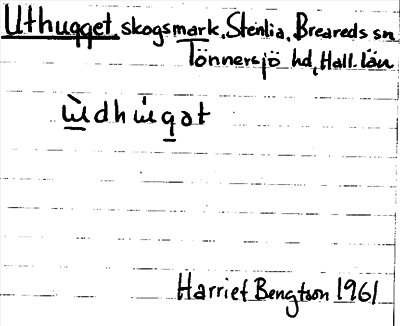 Uthugget, skogsmark, Stenlia, Breareds sn
Tönnersjö hd, Hall. län
ùdhùgət
Harriet Bengtson 1961